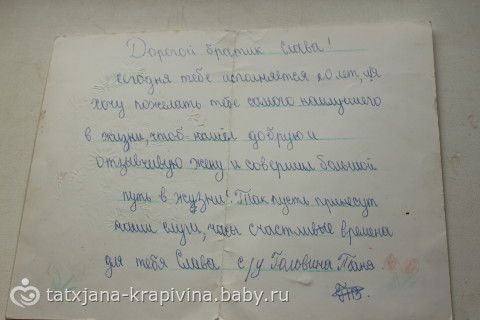 Дорогой братик Слава!
сегодня тебе исполняется 20 лет, я
хочу пожелать тебе самого наилучшего
в жизни, чтоб нашёл добрую и
отзывчивую жену и совершил большой
путь в жузни! Так пусть принесут
наши часы счастливые времена
для тебя Слава с/у Головина Таня
tatxjana-krapivina.baby.ru